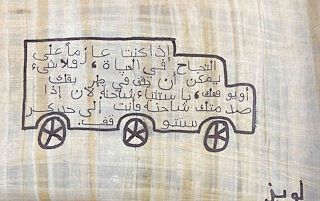 إذا كنت عازماً على
النجاح، في الحياة، فلا شيء
يمكن أن يقف في طر يقك
أو يوقفك، باستثناء شاحنة لأن إذا
صدمتك شاحنة فأنت إلى حد كبير
ستتوقف.
لويز